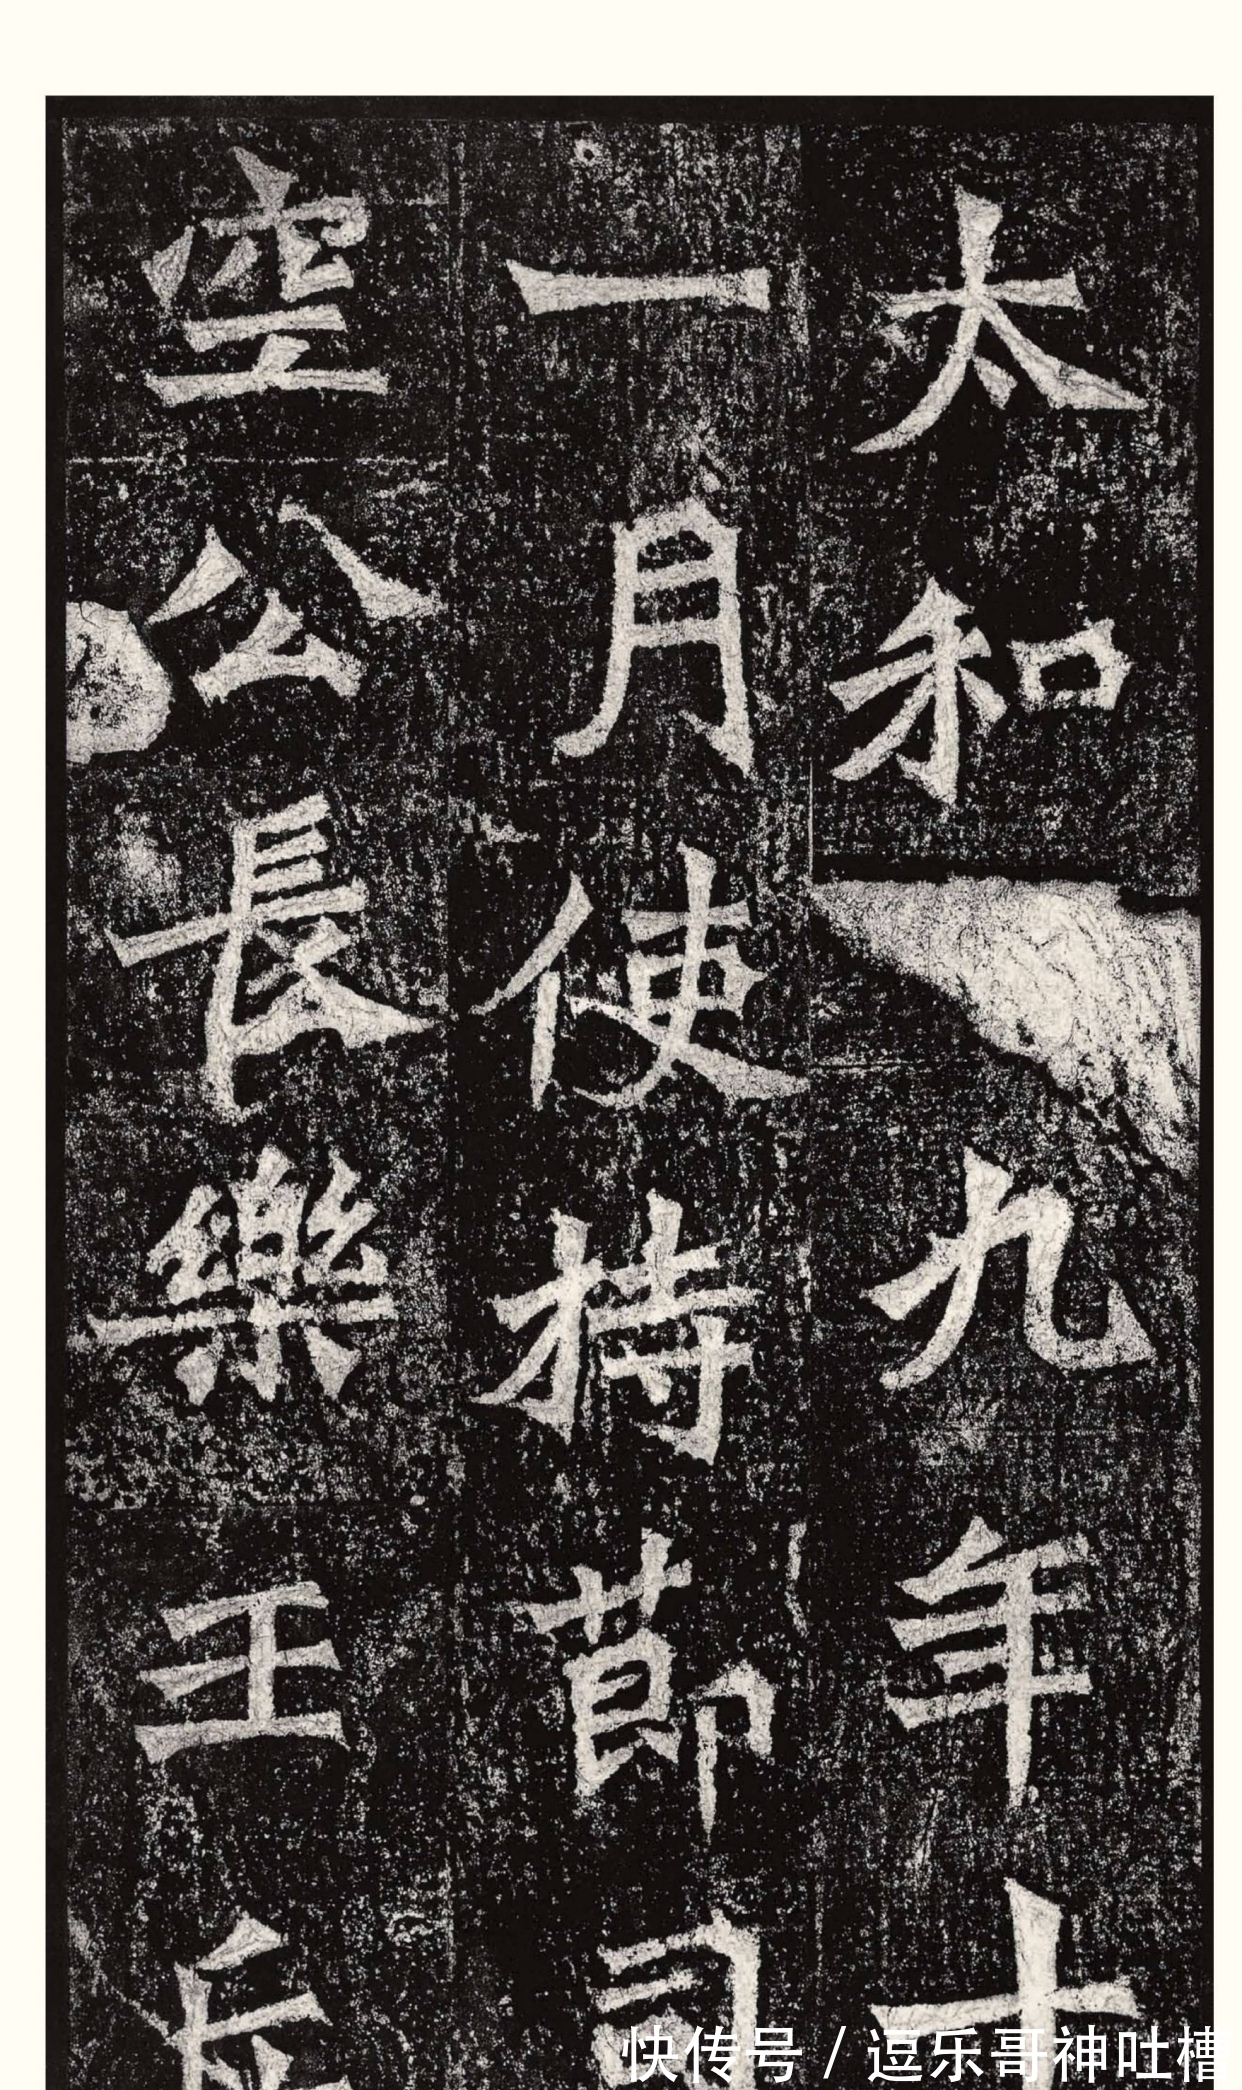 太和九年十
一月使持節司
空公長樂王丘
快传号 / 逗乐哥神吐槽